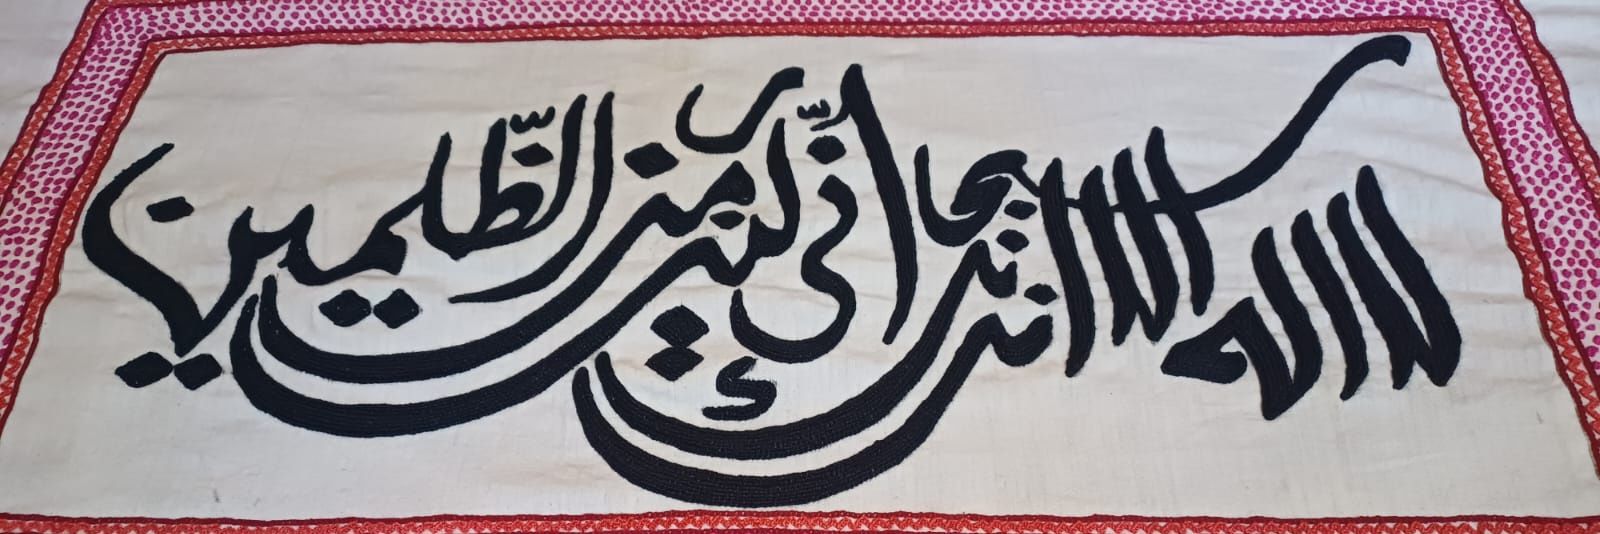 لا اله الا انت سبحانك انّی كنت من الظّلمين